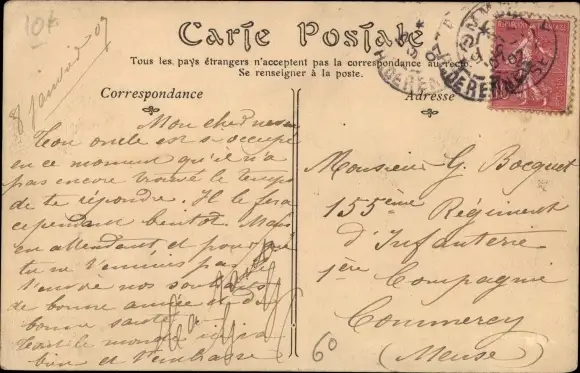 10€
Carte Postale
Tous les pays étrangers n'acceptent pas la correspondance au recto.
Se renseigner à la poste.
Correspondance
Adresse
8 janvier 07
Mon cher neveu
Ton oncle est si occupé
en ce moment qu'il n'a
pas encore trouvé le temps
de te répondre. Il le fera
cependant bientôt. Mais
en attendant, et pour que
tu ne t'ennuies pas
t'envoie nos souhaits
de bonne année et de
bonne santé
Tout le monde ici va
bien et t'embrasse
Monsieur G. Bocquet
155ème Régiment
d'Infanterie
1ère Compagnie
Commercy
(Meuse)
60